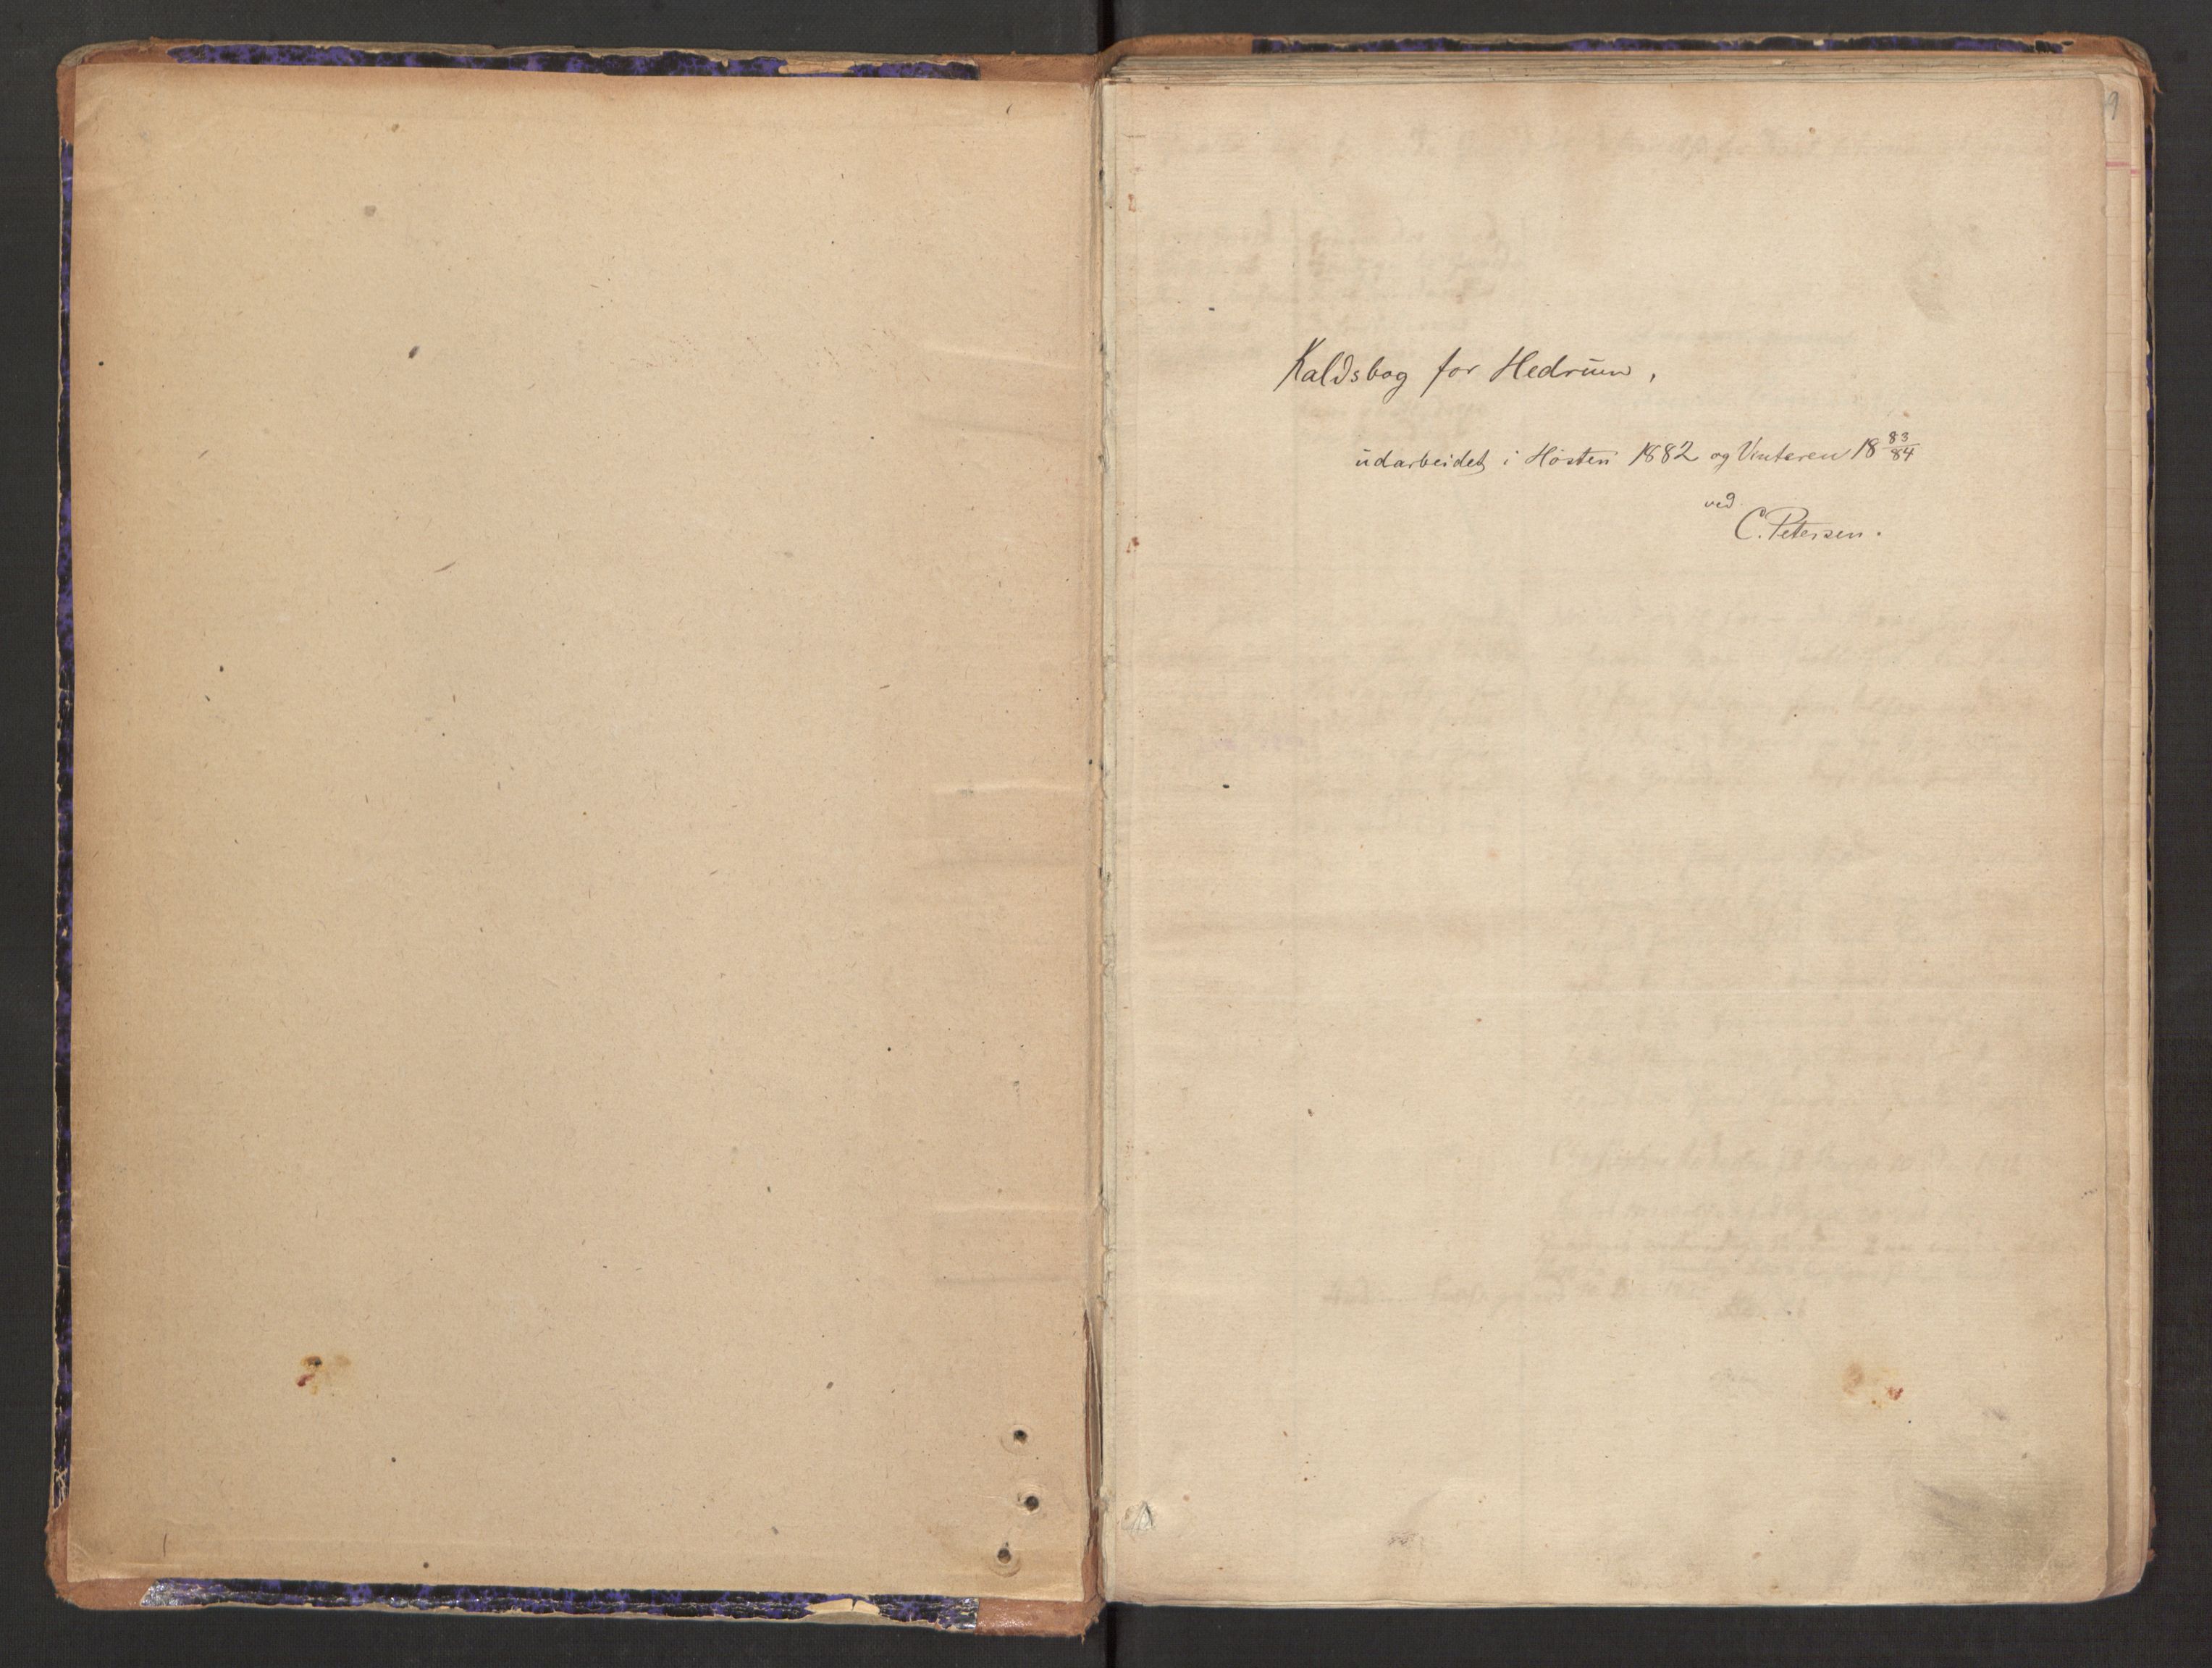 9
Kaldsbog for Hedrum,
udarbeidet i Høsten 1882 og Vinteren 18 83/84
ved
C. Petersen.